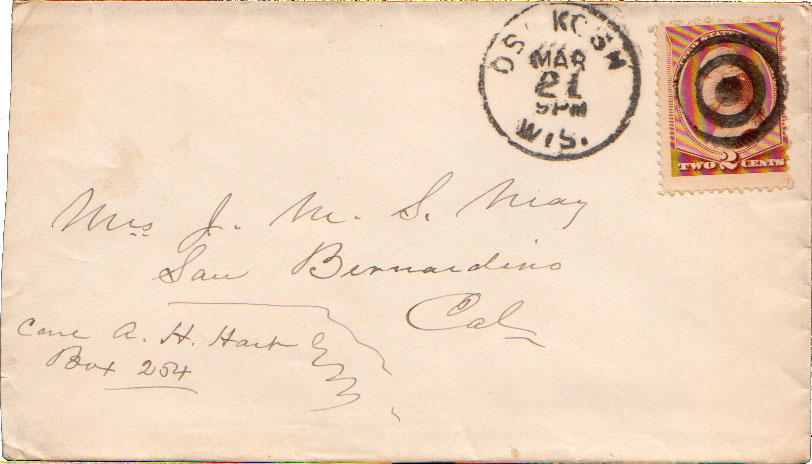 OSHKOSH
MAR
21
9PM
WIS.
TWO 2 CENTS
Mrs J. M. S. May
San Bernardino
Cal
Care A. H. Hart
Box 254